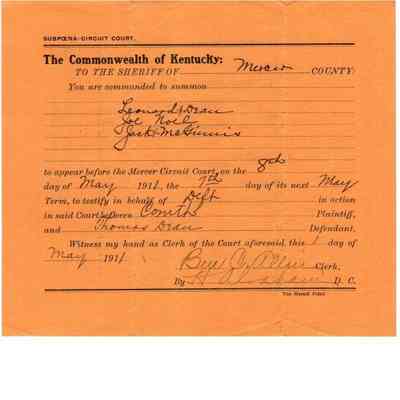 SUBPŒNA-CIRCUIT COURT.
The Commonwealth of Kentucky:
TO THE SHERIFF OF Mercer COUNTY:
You are commanded to summon
Leonard Dean
Joe Noel
Jack McGinnis
to appear before the Mercer Circuit Court, on the 8th
day of May 1911, the 7th day of its next May
Term, to testify in behalf of Deft in action
in said Court between Comth Plaintiff,
and Thomas Dean Defendant.
Witness my hand as Clerk of the Court aforesaid, this 1 day of
May 1911
Ben C. Allin Clerk,
By D. C.
The Herald Print